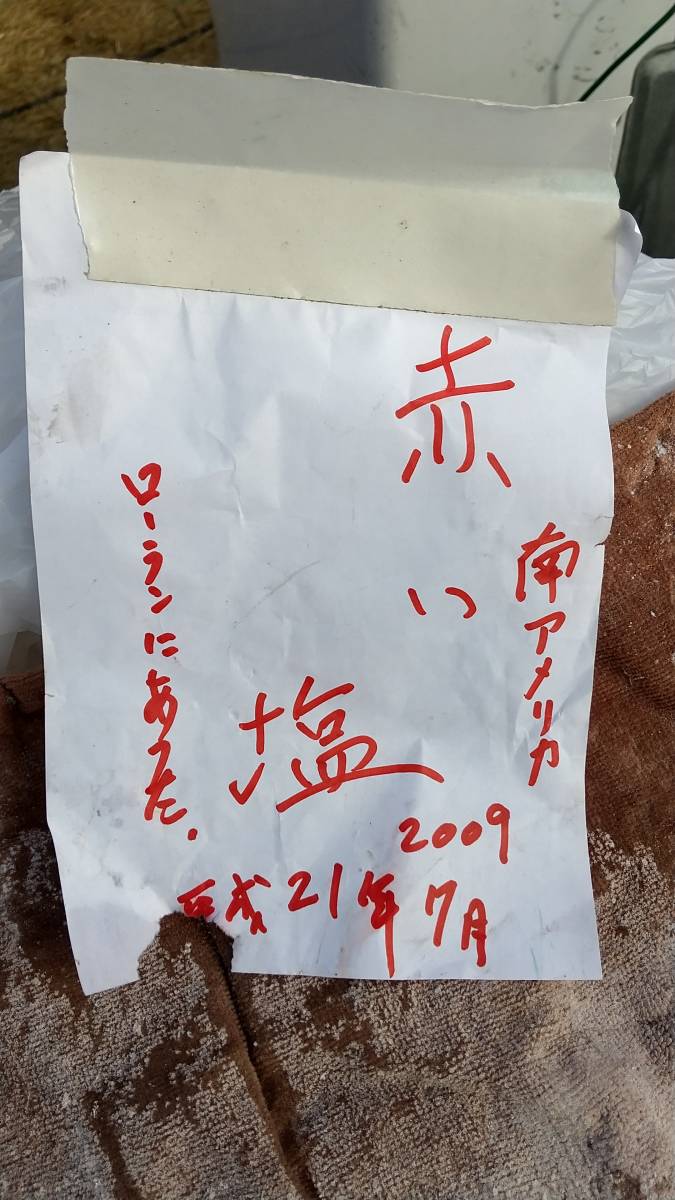 南アメリカ
赤い塩
ローランにあった.
2009
平成21年7月